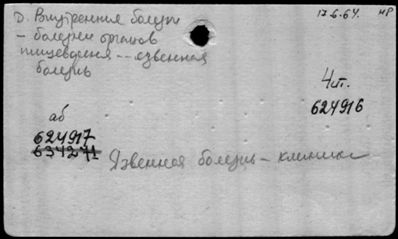 D. Внутренние болезни
17.6.64. нр
- болезни органов
пищеварения -- язвенная
болезнь
4 эт.
624916
аб
624917
634271
Язвенная болезнь - клиника